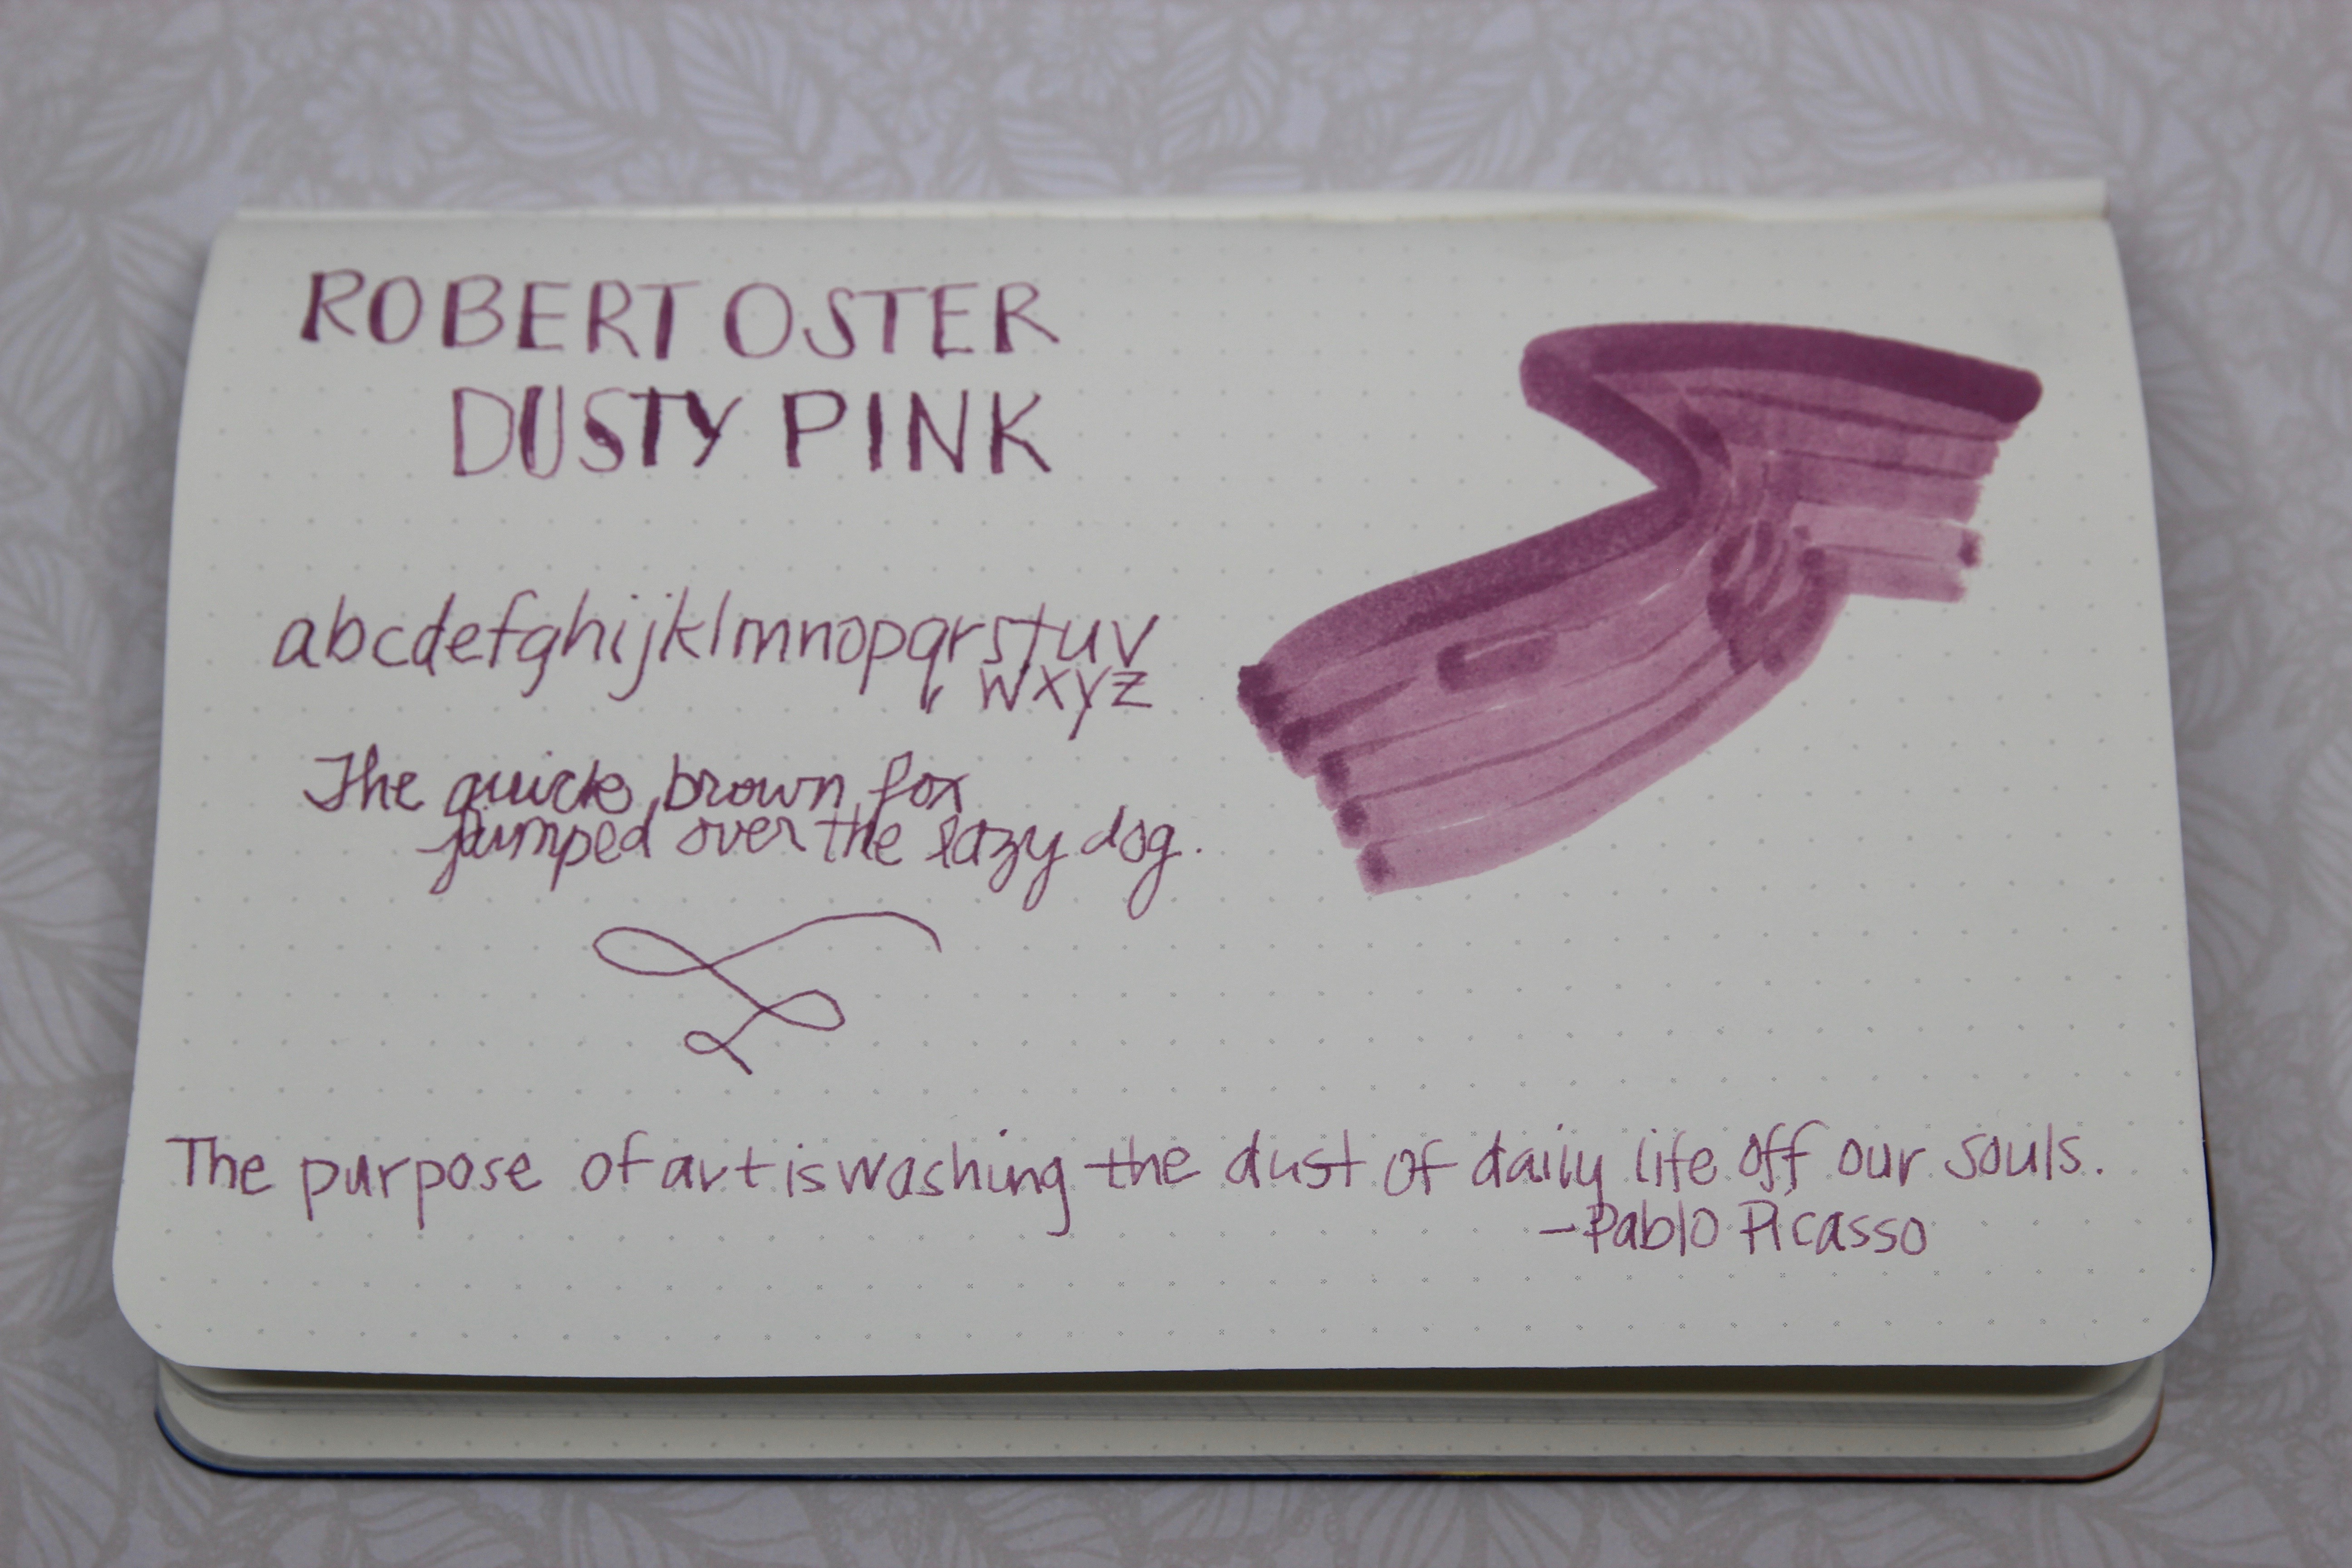 ROBERT OSTER
DUSTY PINK
abcdefghijklmnopqrstuv
wxyz
The quick brown fox
jumped over the lazy dog.
The purpose of art is washing the dust of daily life off our souls.
-Pablo Picasso